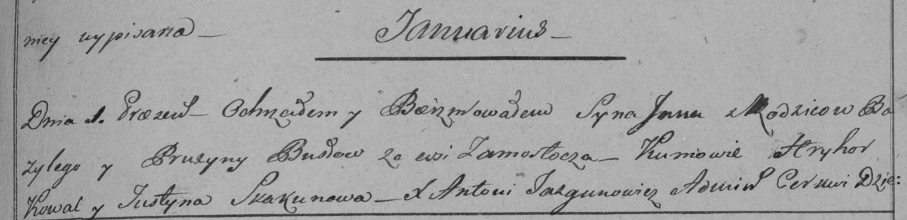 niey wypisana — Januarius —
Dnia 1. Prezent — Ochrzciłem y Bierzmowałem Syna Jana z Rodzicow Ba
zylego y Pruzyny Busłow ze wsi Zamostocza — Kumowie Hryhor
Kowal y Justyna Skakunowa — X Antoni Jazgunowicz Admin Cerkwi Dzie: